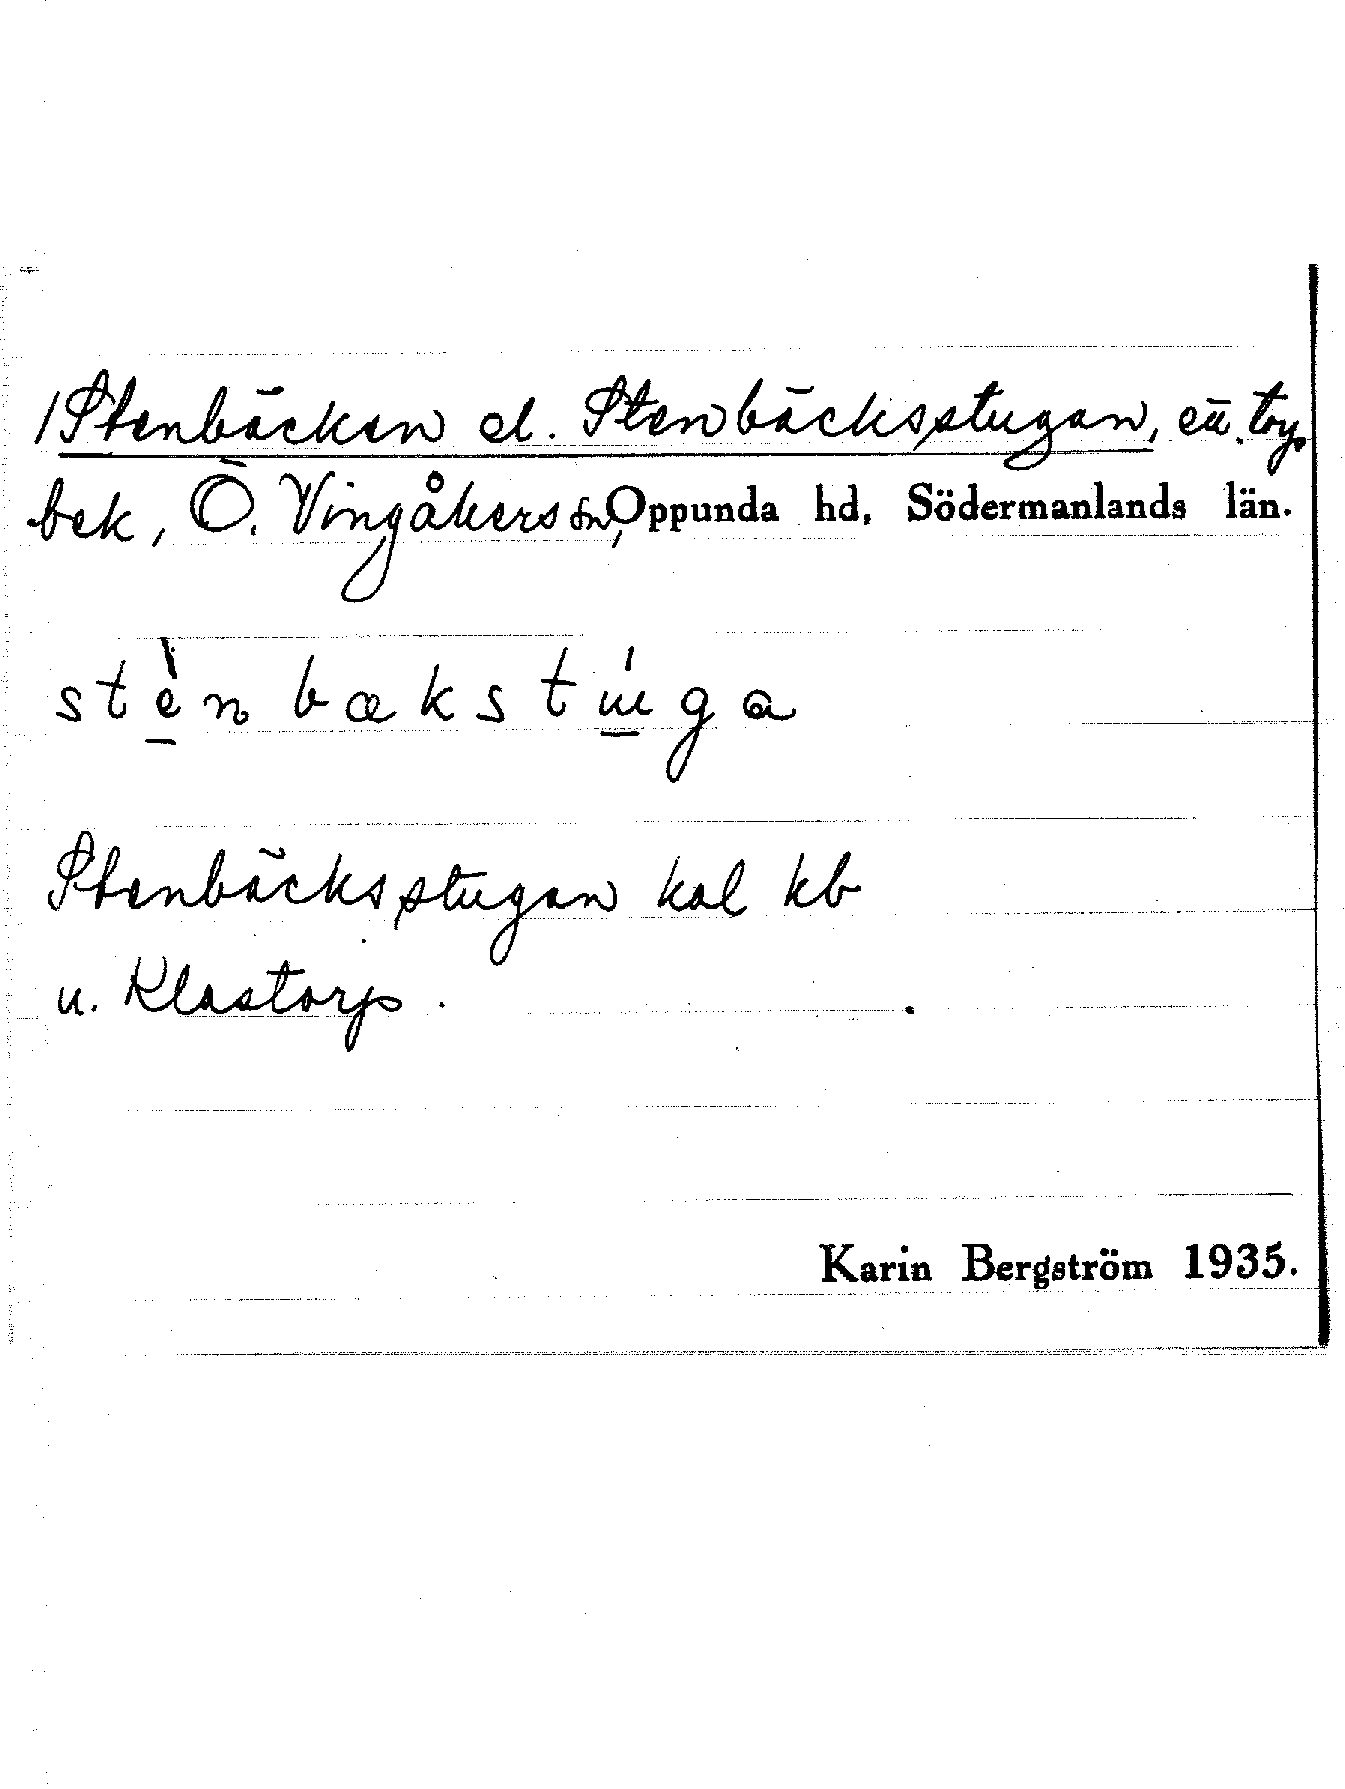 1 Stenbäcken el. Stenbäcksstugan, eü. torp
bek, Ö. Vingåkers sn, Oppunda hd, Södermanlands län.
stènbækstúga
Stenbäcksstugan kal kb
u. Klastorp.
Karin Bergström 1935.